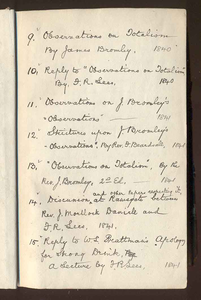 9. "Observations on Totalism"
By James Bromley. 1840
10. Reply to "Observations on Totalism"
By F. R. Lees. 1840
11. Observations on J Bromley's
"Observations" — 1841
12. Strictures upon J Bromley's
"Observations", By Rev. J. Bowditch. 1841
13. "Observations on Totalism", by the
Rev. J. Bromley, 2nd Ed. 1841
and other papers respecting it
14. Discussion at Ramsgate between
Rev. J. Mortlock Daniell and
Dr. R. Lees. 1841.
15. Reply to W. L. Brattman's Apology
for Strong Drink,
a Lecture by F R Lees. 1841